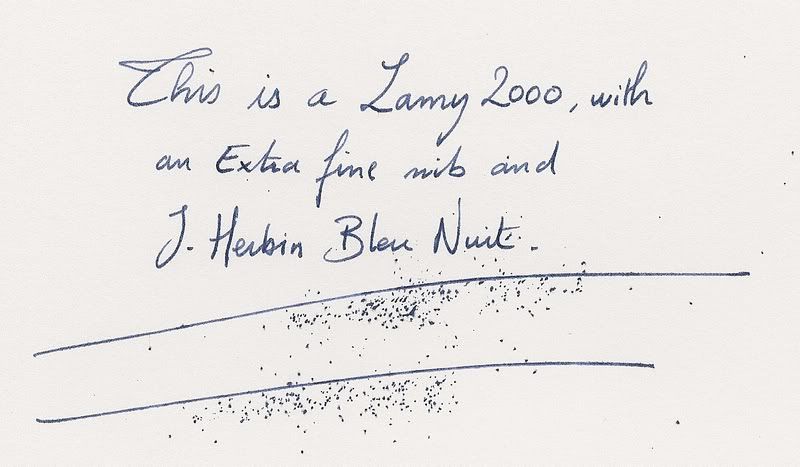 This is a Lamy 2000, with
an Extra fine nib and
J. Herbin Bleu Nuit.